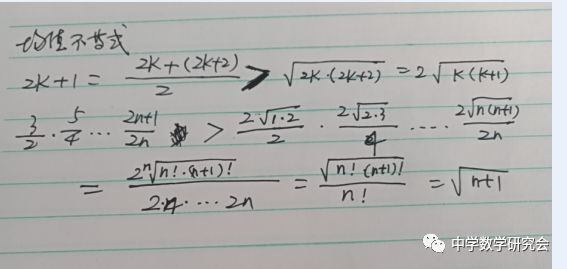 均值不等式
2k+1 = \frac{2k+(2k+2)}{2} > \sqrt{2k·(2k+2)} = 2\sqrt{k(k+1)}
\frac{3}{2}·\frac{5}{4}···\frac{2n+1}{2n} > \frac{2·\sqrt{1·2}}{2}·\frac{2\sqrt{2·3}}{4}·····\frac{2\sqrt{n(n+1)}}{2n}
= \frac{2^n\sqrt{n!·(n+1)!}}{2·4·····2n} = \frac{\sqrt{n!(n+1)!}}{n!} = \sqrt{n+1}
中学数学研究会